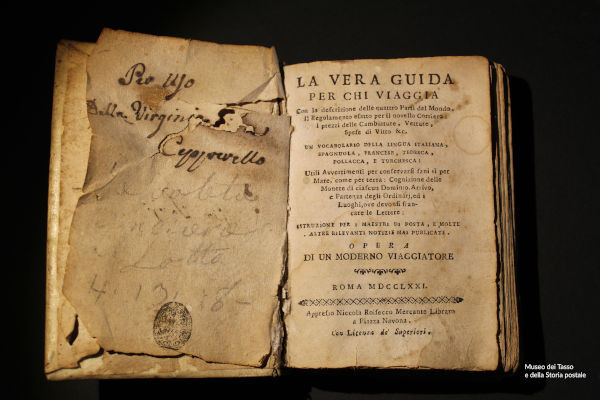 Per uso
Della Virginia
Ceppovello
LA VERA GUIDA
PER CHI VIAGGIA
Con la descrizione delle quattro Parti del Mondo,
il Regolamento esatto per il novello Corriero:
i prezzi delle Cambiature, Vetture,
Spese di Vitto &c.
UN VOCABOLARIO DELLA LINGUA ITALIANA,
SPAGNUOLA, FRANCESE, TEDESCA,
POLLACCA, E TURCHESCA:
Utili Avvertimenti per conservarsi sani sì per
Mare, come per terra: Cognizione delle
Monete di ciascun Dominio, Arrivo,
e Partenza degli Ordinarj, ed i
Luoghi, ove devonsi fran-
care le Lettere:
ISTRUZIONE PER I MAESTRI DI POSTA, E MOLTE
ALTRE RILEVANTI NOTIZIE MAI PUBLICATE.
OPERA
DI UN MODERNO VIAGGIATORE
ROMA MDCCLXXI.
Appresso Niccola Roisecco Mercante Libraro
a Piazza Navona.
Con Licenza de' Superiori.
Museo dei Tasso
e della Storia postale